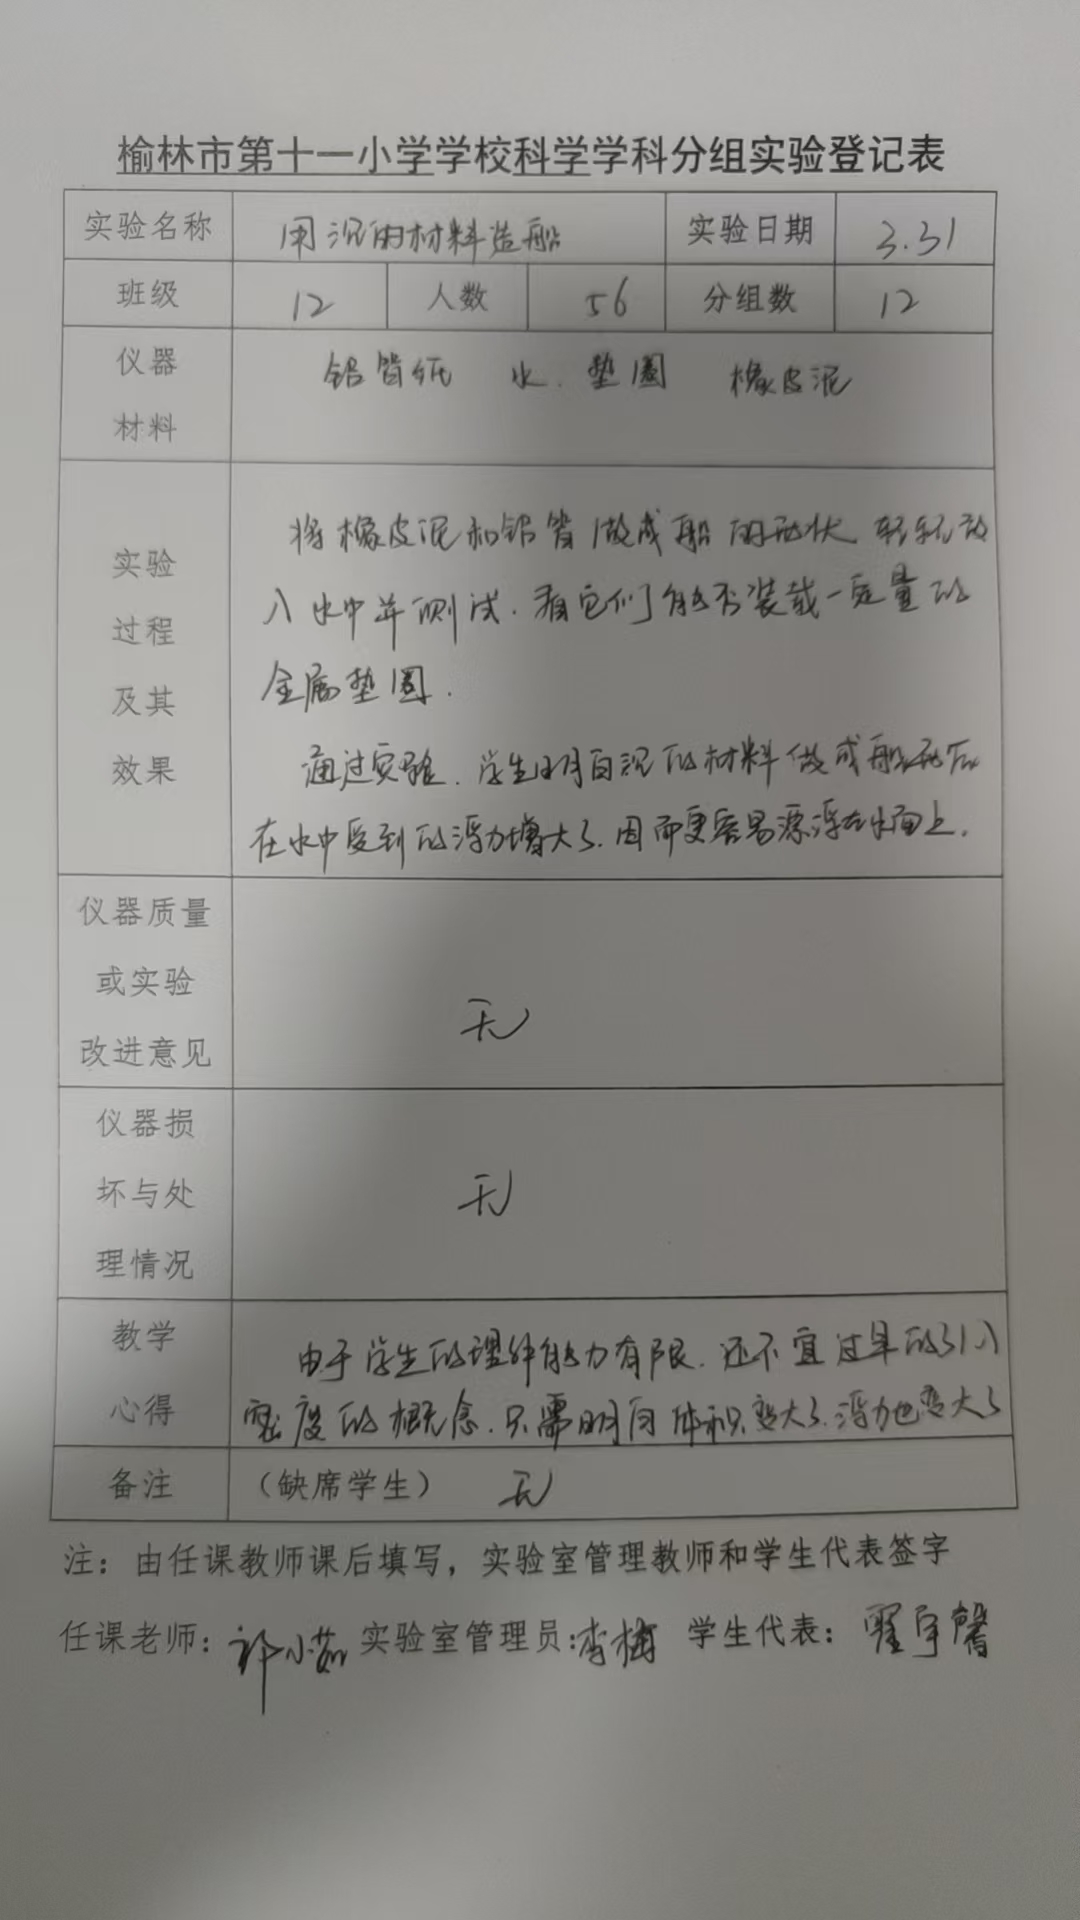 榆林市第十一小学学校科学学科分组实验登记表
实验名称 用沉的材料造船 实验日期 3.31
班级 12 人数 56 分组数 12
仪器 铝箔纸 水. 垫圈 橡皮泥
材料
将橡皮泥和铝箔做成船的形状 轻轻放
实验
入水中并测试. 看它们能否装载一定量的
过程
金属垫圈.
及其
通过实验. 学生明白沉的材料做成船形后
效果
在水中受到的浮力增大了. 因而更容易漂浮在水面上.
仪器质量
或实验
无
改进意见
仪器损
坏与处 无
理情况
教学 由于学生的理解能力有限. 还不宜过早的引入
心得 密度的概念. 只需明白体积变大了. 浮力也变大了
备注 (缺席学生) 无
注：由任课教师课后填写，实验室管理教师和学生代表签字
任课老师： 小茹 实验室管理员: 李梅 学生代表： 宇馨